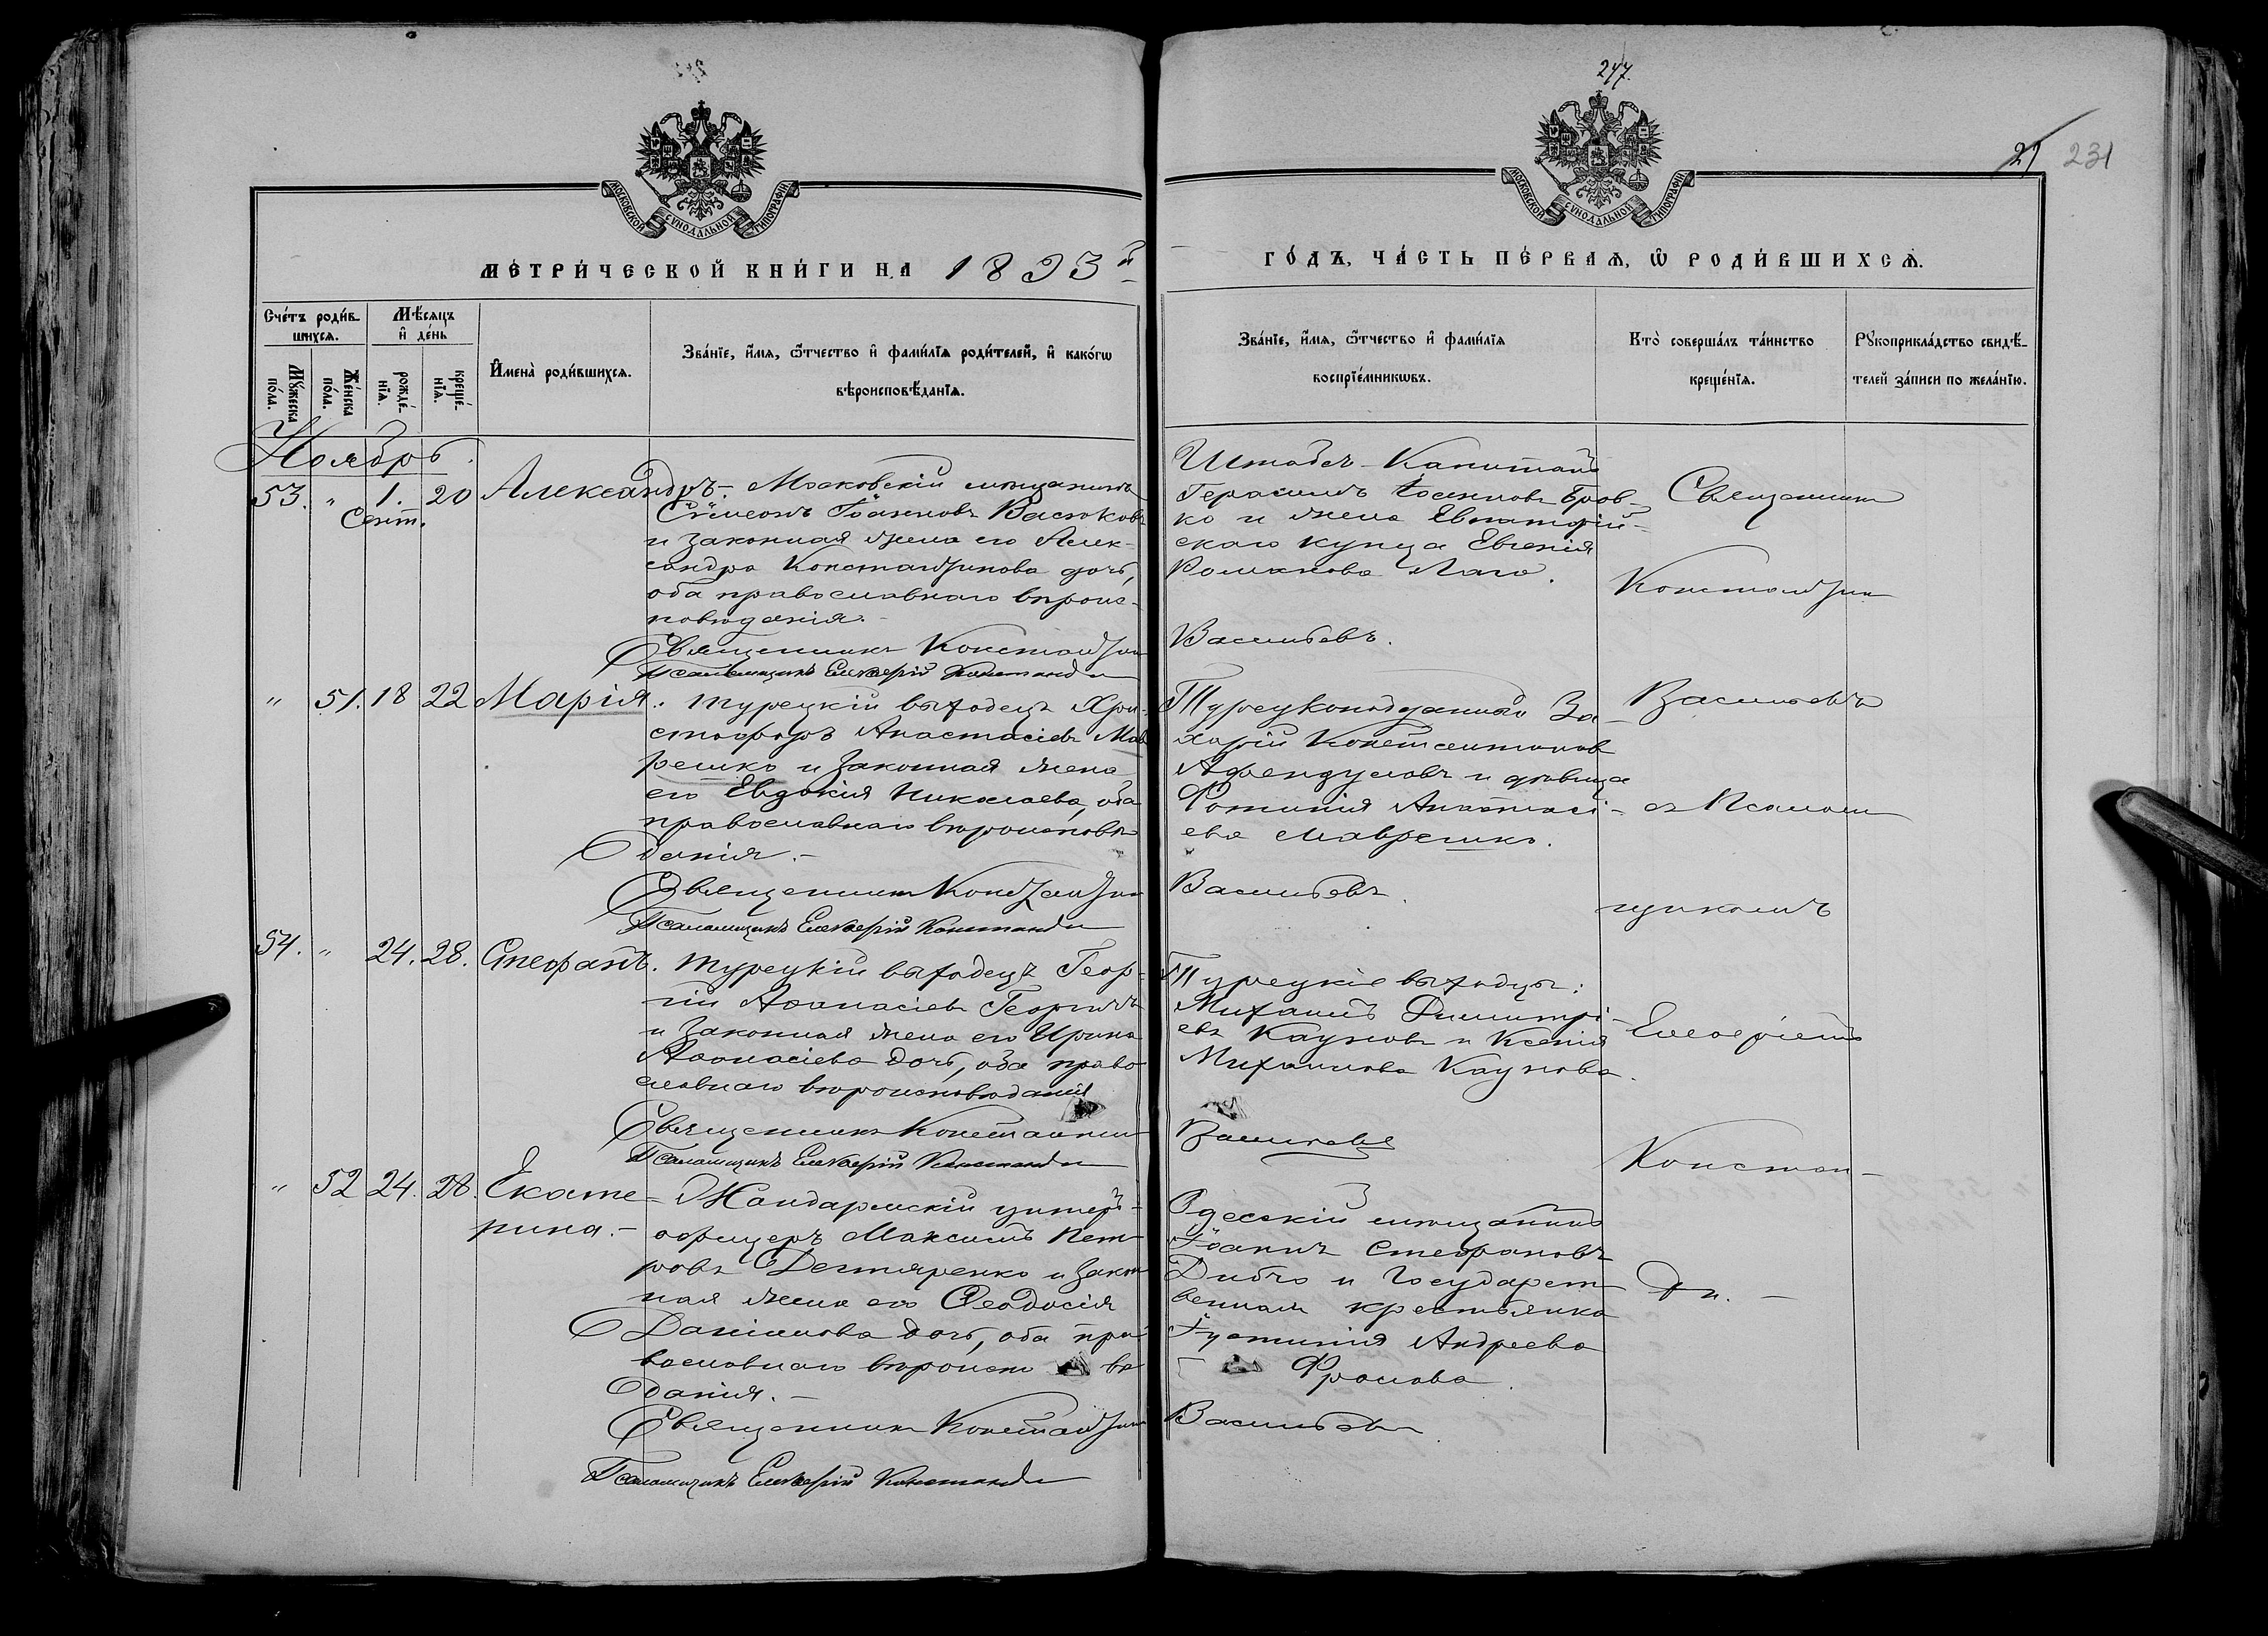 247.
21 231
МОСКОВСКОЙ СѴНОДАЛЬНОЙ ТИПОГРАФІИ
МОСКОВСКОЙ СѴНОДАЛЬНОЙ ТИПОГРАФІИ
МЕТРИЧЕСКОЙ КНИГИ НА 1893й
ГОДЪ, ЧАСТЬ ПЕРВАЯ, Ѡ РОДИВШИХСЯ.
Счетъ родив-
шихся.
Мѣсяцъ
и день
Мужеска
пола.
Женска
пола.
рожде-
нїя.
креще-
нїя.
Имена родившихся.
Званїе, имя, ѿчество и фамилїя родителей, и какогѡ
вѣроисповѣданїя.
Званїе, имя, ѿчество и фамилїя
воспрїемникѡвъ.
Кто совершалъ таинство
крещенїя.
Рукоприкладство свидѣ-
телей записи по желанїю.
Ноябрь.
53. " 1. 20 Александръ.
Сент.
Московскій мѣщанинъ
Сѵмеонъ Іоанновъ Васюковъ
и законная жена его Алек-
сандра Константинова дочь,
оба православнаго вѣроис-
повѣданія.-
Священникъ Константинъ
Псаломщикъ Елевѳерій Константи
Штабсъ-Капитанъ
Герасимъ Іосифовъ Бров-
ко и жена Евпаторій-
скаго купца Евгенія
Романова Лаго.
Васильевъ.
Священникъ
Константинъ
Васильевъ
съ Псалом
щикомъ
Елевѳеріемъ
Констан-
ди.-
" 51. 18 22 Марія.
Турецкій выходецъ Хри-
стофоръ Анастасіевъ Мав
решко и законная жена
его Евдокія Николаева, оба
православнаго вѣроисповѣ
данія.-
Священникъ Константинъ
Псаломщикъ Елевѳерій Константи
Турецкоподданный За-
харій Константинов
Афендуловъ и дѣвица
Фотинія Анастасі-
ева Маврешко.
Васильевъ.
54. " 24. 28. Стефанъ.
Турецкій выходецъ Геор-
гій Аѳанасіевъ Георгіевъ
и законная жена его Ирина
Аѳанасіева дочь, оба право
славнаго вѣроисповѣданія
Священникъ Константинъ
Псаломщикъ Елевѳерій Константи
Турецкіе выходцы:
Михаилъ Димитрі-
евъ Кауновъ и Ксенія
Михаилова Каунова.
Васильевъ
" 52 24. 28. Екате-
рина.-
Жандармскій унтеръ-
офицеръ Максимъ Пет
ровъ Дегтяренко и закон
ная жена его Ѳеодосія
Даніилова дочь, оба пра
вославнаго вѣроиспо вѣ
данія.-
Священникъ Константинъ
Псаломщикъ Елевѳерій Константи
Одесскій мѣщанинъ
Іоаннъ Стефановъ
Дибчо и Государст
венная крестьянка
Іустинія Андреева
Фролова.
Васильевъ